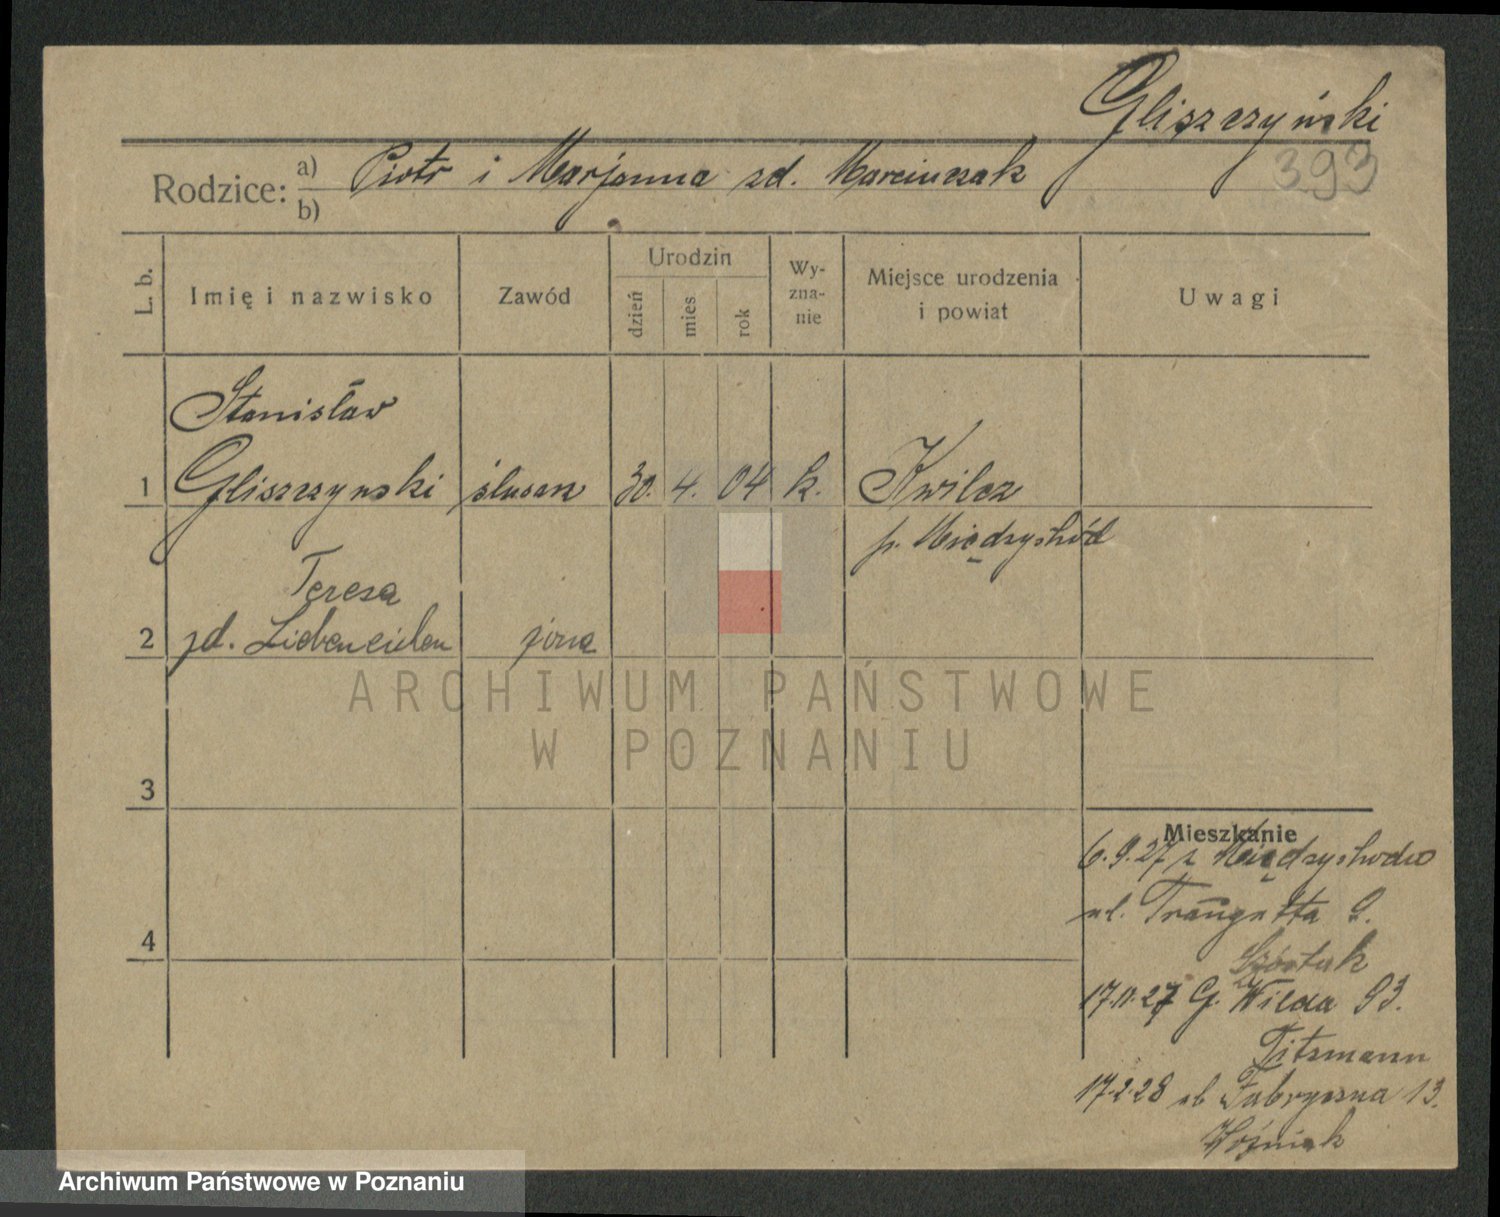 Gliszczyński
393
Rodzice: a) Piotr i Marjanna zd. Marciniczak
b)
L. b. Imię i nazwisko Zawód Urodzin dzień mies rok Wy-zna-nie Miejsce urodzenia i powiat Uwagi
Stanisław
1 Gliszczynski ślusarz 30. 4. 04 k. Kwilcz
p. Międzychód
Teresa
2 zd. żona
ARCHIWUM PAŃSTWOWE
W POZNANIU
3
Mieszkanie
6.9.27 z Międzychodu
ul. Traugutta 9.
4
Szóstak
17.11.27 G. Wilda 93.
Titzmann
17.2.28 ul Fabryczna 13.
Woźniak
Archiwum Państwowe w Poznaniu